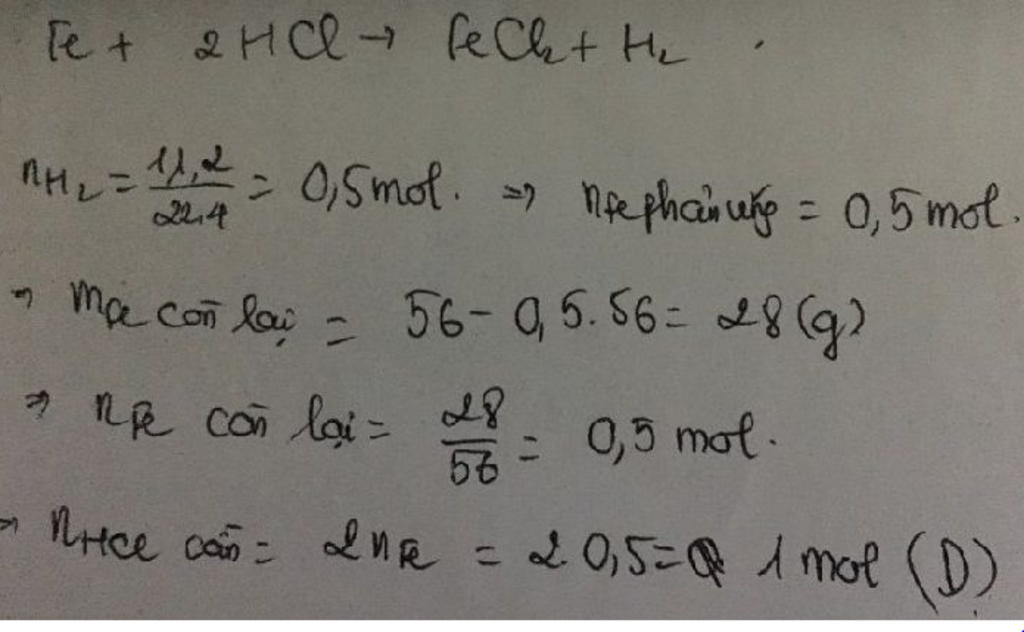 Fe + 2HCl → FeCl₂ + H₂
nH₂ = 11,2/22,4 = 0,5mol. ⇒ nFe phản ứng = 0,5 mol.
⇒ mFe còn lại = 56 - 0,5.56 = 28 (g)
⇒ nFe còn lại = 28/56 = 0,5 mol.
⇒ nHCl cần = 2nFe = 2.0,5 = 1 mol (D)